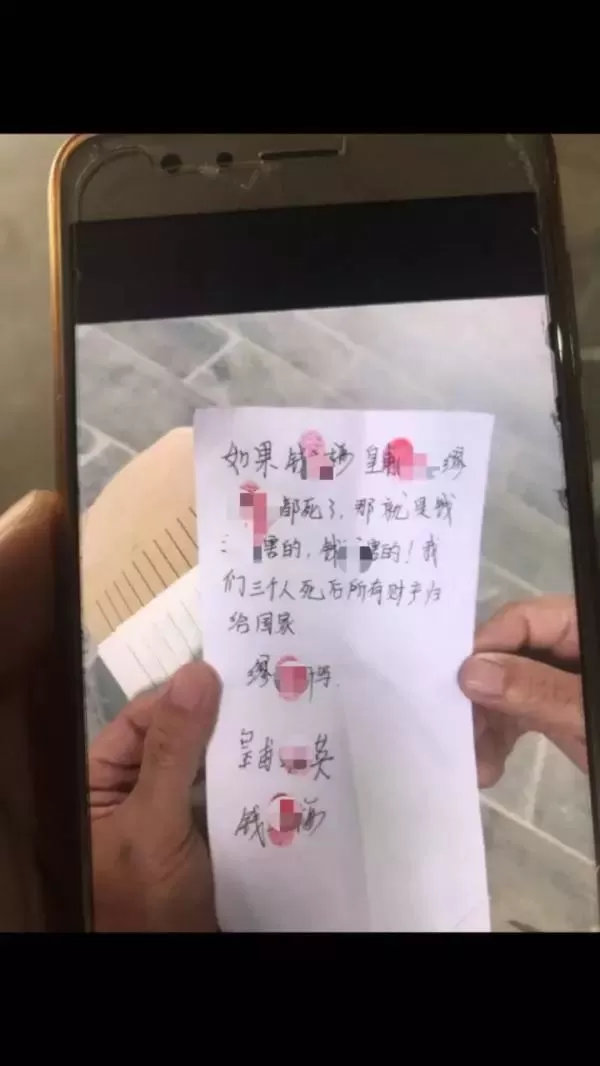 如果钱 梅 皇甫 缪
都死了,那就是钱
害的,钱 害的!我
们三个人死后所有财产归
给国家
缪
皇甫 英
钱 梅